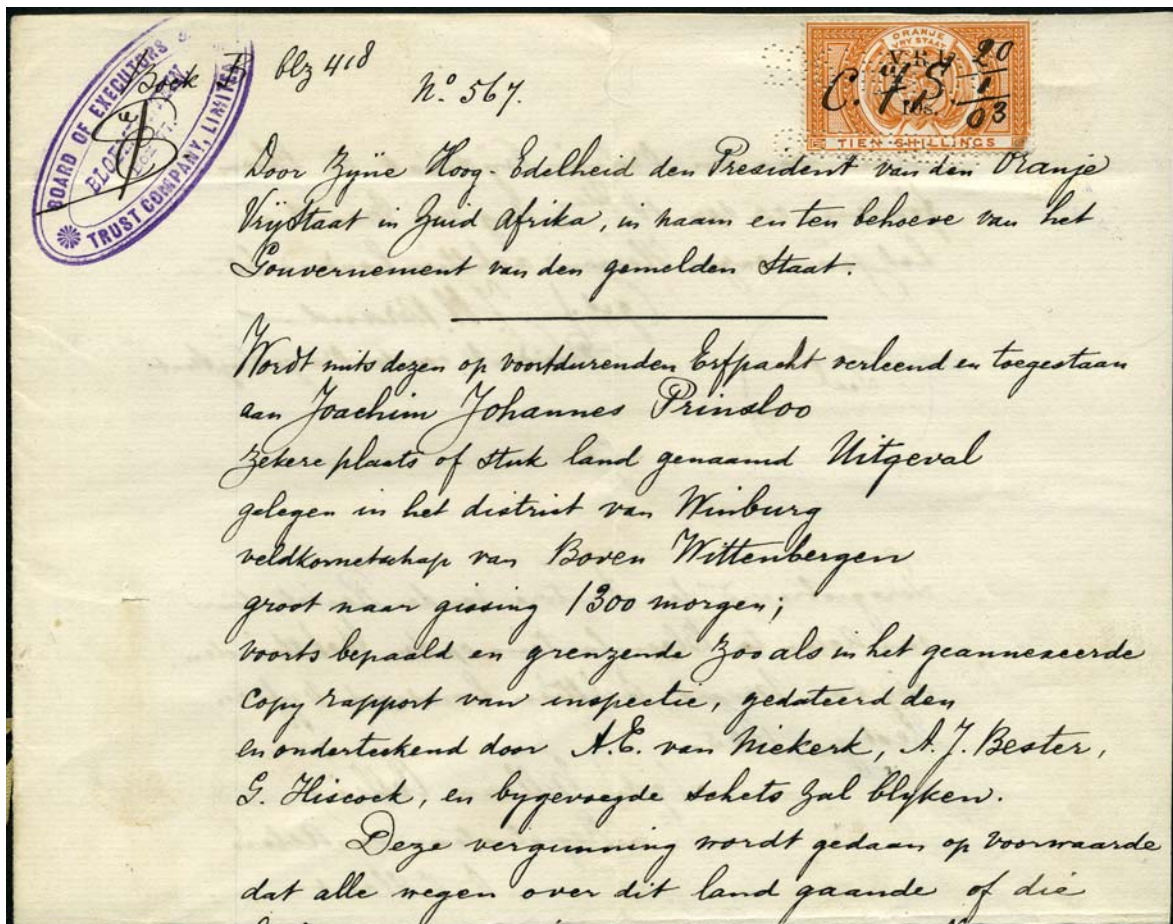 BOARD OF EXECUTORS &
TRUST COMPANY, LIMITED
Boek blz 418
No. 567.
ORANJE
VRIJ STAAT
V.R.I.
10s.
TIEN SHILLINGS
20
1
03
Door Zijne Hoog-Edelheid den President van den Oranje
Vrijstaat in Zuid Afrika, in naam en ten behoeve van het
Gouvernement van den gemelden Staat.
Wordt mits dezen op voortdurenden Erfpacht verleend en toegestaan
aan Joachim Johannes Prinsloo
zekere plaats of stuk land genaamd Uitgeval
gelegen in het district van Winburg
veldkornetschap van Boven Wittenbergen
groot naar gissing 1300 morgen;
voorts bepaald en grenzende zooals in het geannexeerde
copy rapport van inspectie, gedateerd den
en onderteekend door A.E. van Niekerk, A.J. Bester,
G. Hiscock, en bygevoegde schets zal blyken.
Deze vergunning wordt gedaan op voorwaarde
dat alle wegen over dit land gaande of die